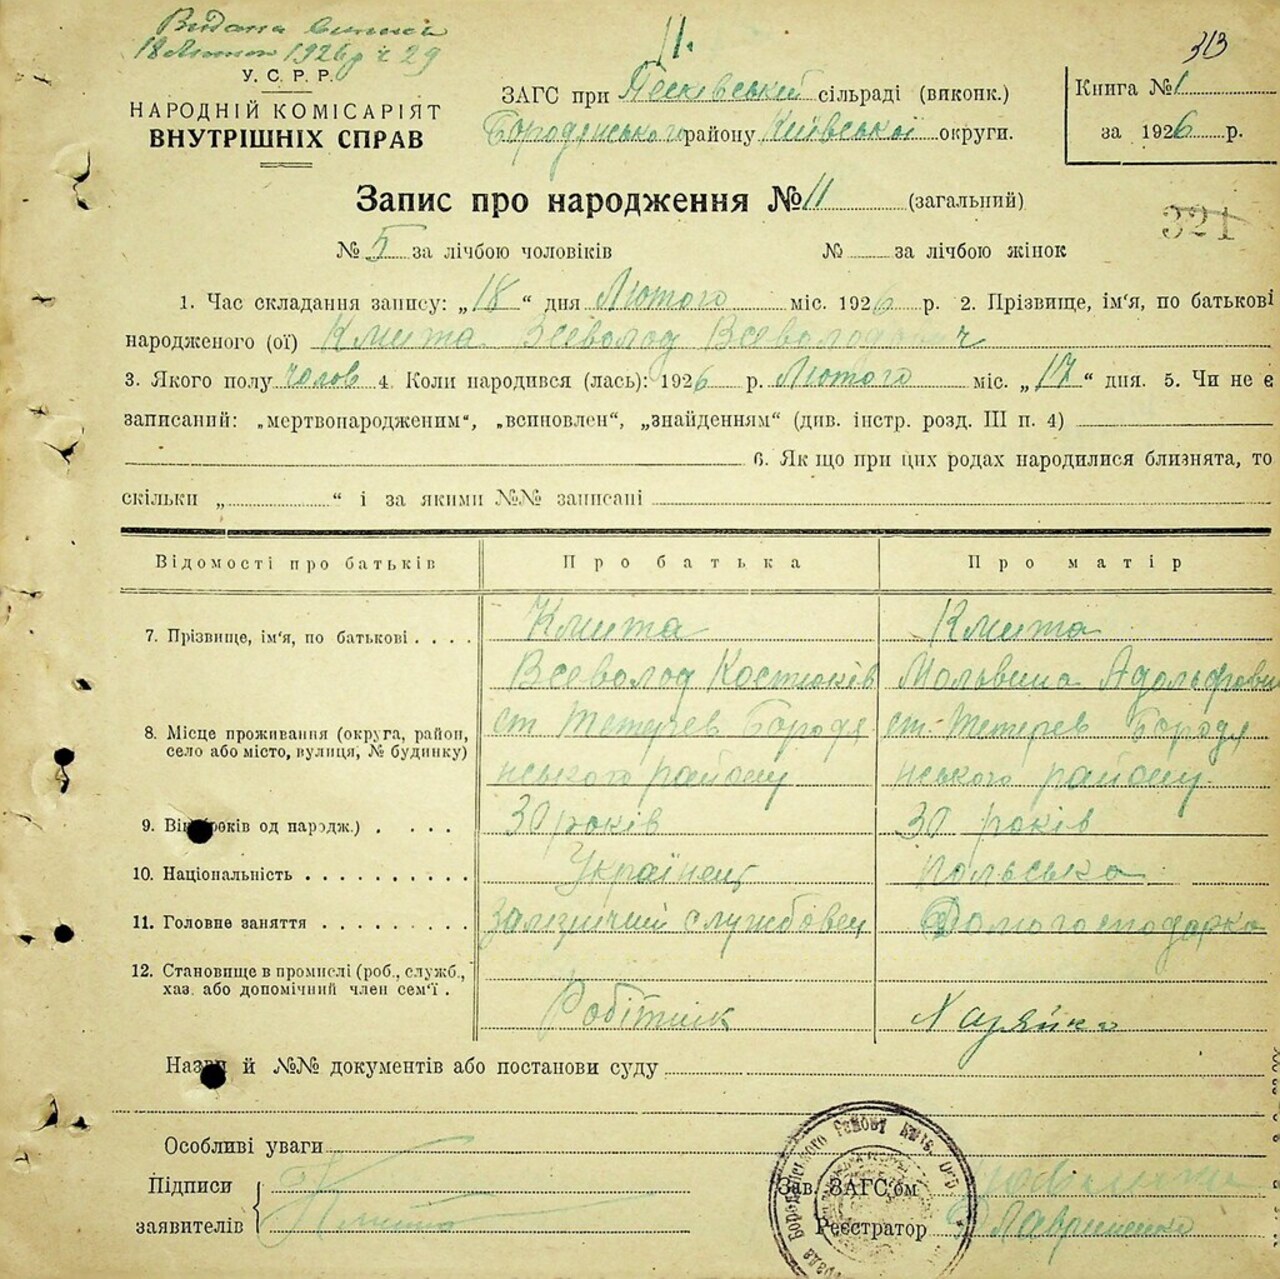 Видана Виписка
18 Лютого 1926 р ч 29
11.
313
У. С. Р. Р.
НАРОДНІЙ КОМІСАРІЯТ
ВНУТРІШНІХ СПРАВ
ЗАГС при Песківський сільраді (виконк.)
Бородянського району Київської округи.
Книга № 1
за 1926 р.
Запис про народження № 11 (загальний)
321
№ 5 за лічбою чоловіків № за лічбою жінок
1. Час складання запису: „18“ дня Лютого міс. 1926 р. 2. Прізвище, ім'я, по батькові
народженого (ої) Кмита Всеволод Всеволодович
3. Якого полу чолов 4. Коли народився (лась): 1926 р. Лютого міс. „17“ дня. 5. Чи не є
записаний: „мертвонародженим“, „всиновлен“, „знайденням“ (див. інстр. розд. III п. 4)
6. Як що при цих родах народилися близнята, то
скільки „ “ і за якими №№ записані
Відомості про батьків Про батька Про матір
7. Прізвище, ім'я, по батькові Кмита Кмита
Всеволод Костюків Мальвина Адольфовн
8. Місце проживання (округа, район, ст Тетерев Бородя ст. Тетерев Бородя
село або місто, вулиця, № будинку) нського району нського району.
9. Вік років од народж.) 30 років 30 років
10. Національність Українец Польська
11. Головне заняття Залізничий службовец Домогосподарка
12. Становище в промислі (роб., служб.,
хаз. або допомічний член сем'ї . Робітник Хазяйка
Назви й №№ документів або постанови суду
Особливі уваги
Підписи
заявителів Кмита
Зав. ЗАГС'ом
Реєстратор Лавриненко
Бородянського району Київ. Окр